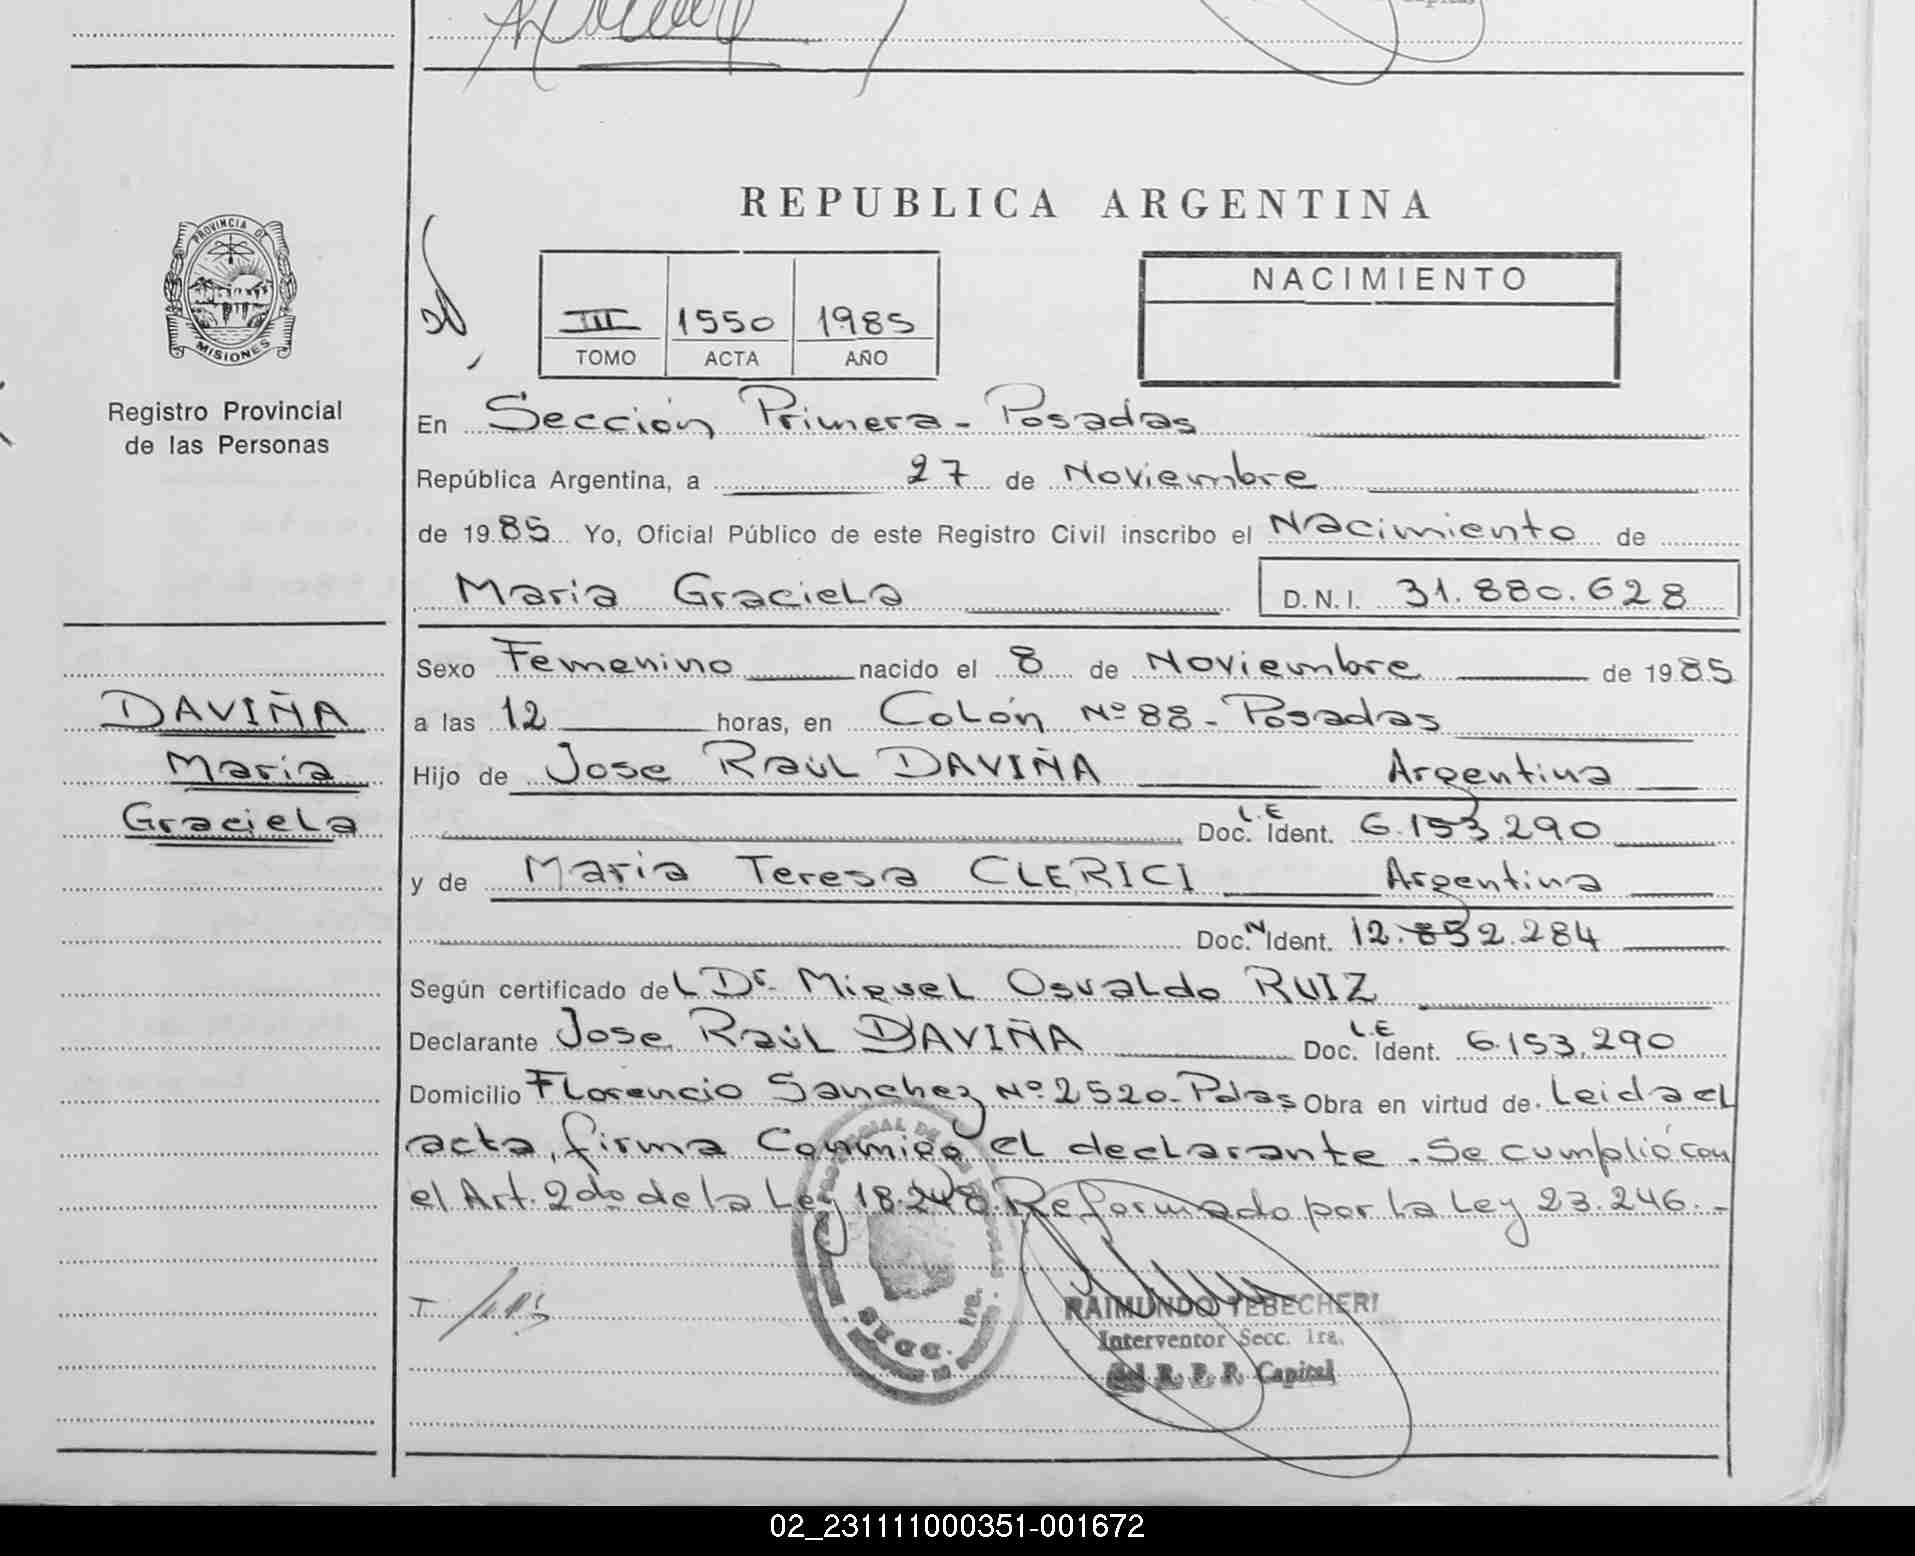 REPUBLICA ARGENTINA
PROVINCIA DE
MISIONES
Registro Provincial
de las Personas
III 1550 1985
TOMO ACTA AÑO
NACIMIENTO
En Sección Primera - Posadas
República Argentina, a 27 de Noviembre
de 1985 Yo, Oficial Público de este Registro Civil inscribo el Nacimiento de
Maria Graciela D.N.I. 31.880.628
Sexo Femenino nacido el 8 de Noviembre de 1985
DAVIÑA
Maria
Graciela
a las 12 horas, en Colón Nº 88 - Posadas
Hijo de Jose Raúl DAVIÑA Argentina
L.E
Doc. Ident. 6.153.290
y de Maria Teresa CLERICI Argentina
Doc. N Ident. 12.852.284
Según certificado del Dr. Miguel Osvaldo RUIZ
Declarante Jose Raúl DAVIÑA L.E Doc. Ident. 6.153.290
Domicilio Florencio Sanchez Nº 2520 - Pdas Obra en virtud de. Leida el
acta, firma Conmigo el declarante. Se cumplió con
el Art. 2do de la Ley 18.248 Reformado por la Ley 23.246.-
SECC. 1ra.
RAIMUNDO TEBECHERI
Interventor Secc. 1ra.
del R. P. P. Capital
02_231111000351-001672